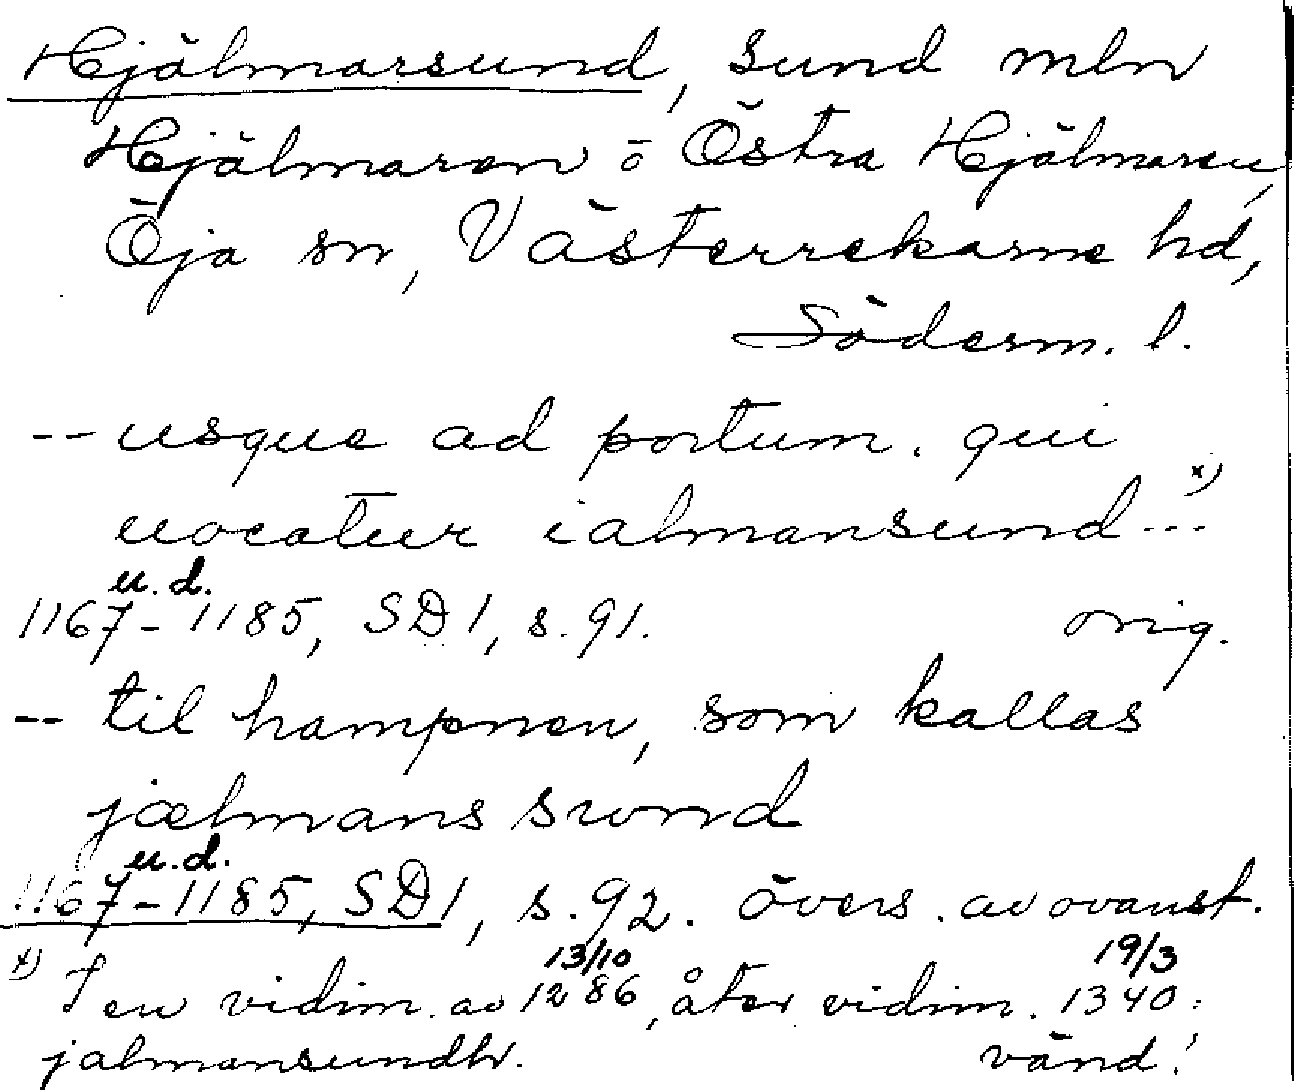 Hjälmarsund, sund mln
Hjälmaren o Östra Hjälmaren,
Öja sn, Västerrekarne hd,
Söderm. l.
-- usque ad portum. qui
uocatur ialmansund --- x)
u.d.
1167-1185, SD 1, s. 91. orig.
-- til hampnen, som kallas
jælmans swnd
u.d.
1167-1185, SD 1, s. 92. övers. av ovanst.
x) I en vidim. av 13/10 1286, åter vidim. 19/3 1340:
jalmansundhr. vänd!